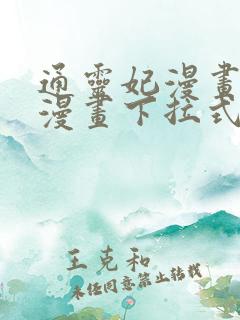 通靈妃漫畫
漫畫下拉式
王克和
未经同意禁止转载